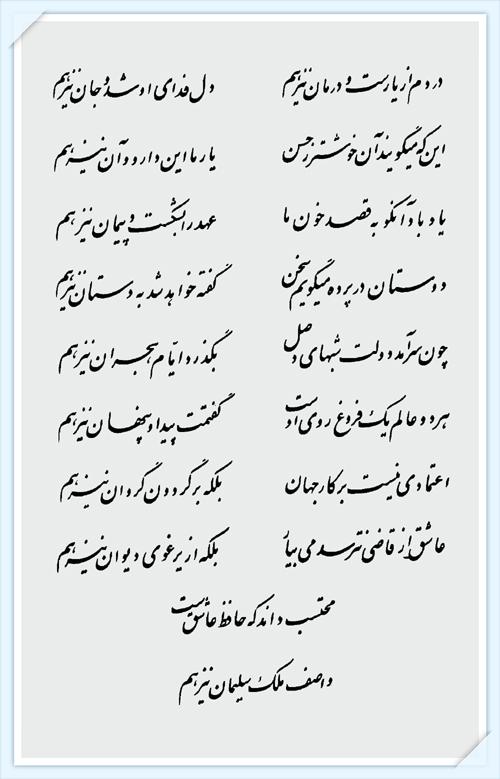 دردم از یارست و درمان نیز هم دل فدای او شد و جان نیز هم
این که میگویند آن خوشتر ز حسن یار ما این دارد و آن نیز هم
یاد باد آنکو به قصد خون ما عهد را بشکست و پیمان نیز هم
دوستان در پرده میگویم سخن گفته خواهد شد به دستان نیز هم
چون سرآمد دولت شبهای وصل بگذرد ایّام هجران نیز هم
هر دو عالم یک فروغ روی اوست گفتمت پیدا و پنهان نیز هم
اعتمادی نیست بر کار جهان بلکه بر گردون گردان نیز هم
عاشق از قاضی نترسد می بیار بلکه از یرغوی دیوان نیز هم
محتسب داند که حافظ عاشق است
واصف ملک سلیمان نیز هم